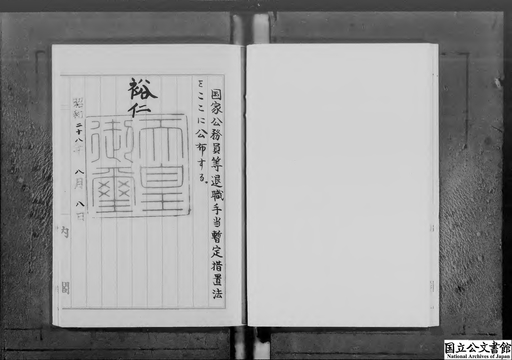 国家公務員等退職手当暫定措置法
をここに公布する。
裕仁
天皇
御璽
昭和二十八年八月八日
内閣
国立公文書館
National Archives of Japan